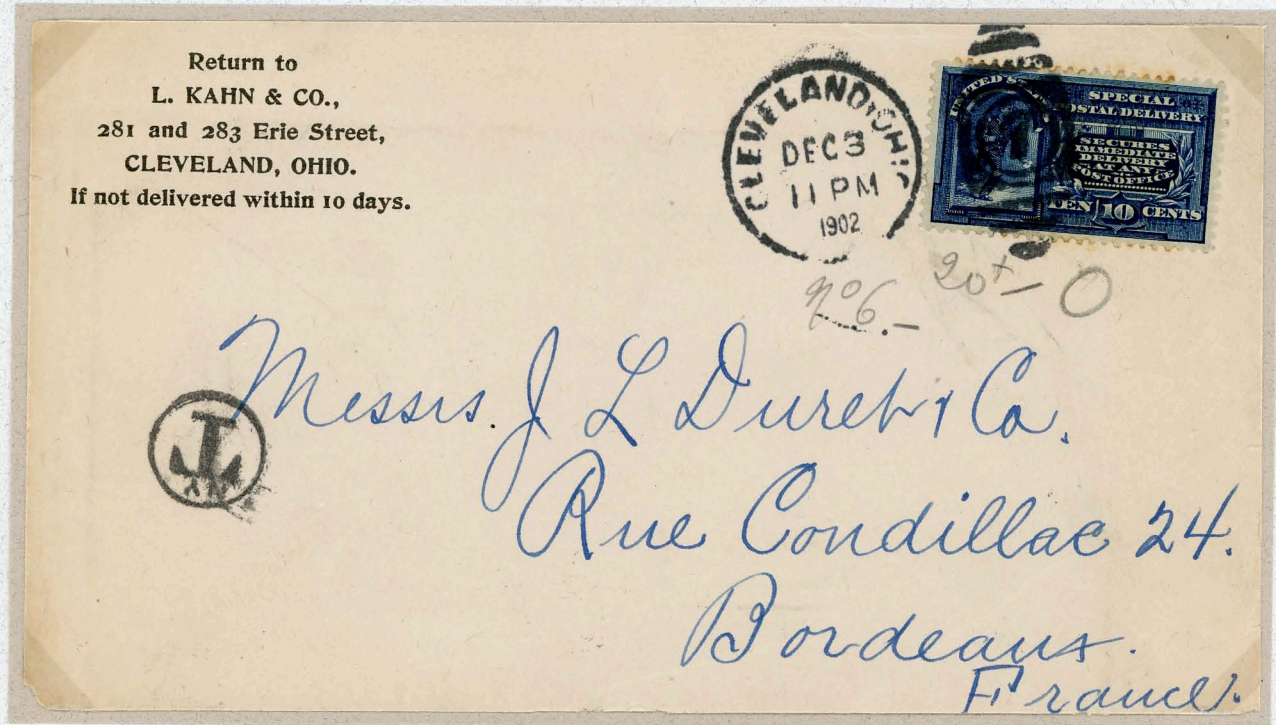 Return to
L. KAHN & CO.,
281 and 283 Erie Street,
CLEVELAND, OHIO.
If not delivered within 10 days.
CLEVELAND, OHIO
DEC 3
11 PM
1902
UNITED STATES
SPECIAL
POSTAL DELIVERY
SECURES
IMMEDIATE
DELIVERY
AT ANY
POST OFFICE
TEN 10 CENTS
No 6.-
T
Messrs. J L Duret & Co.
Rue Condillac 24.
Bordeaux.
France.